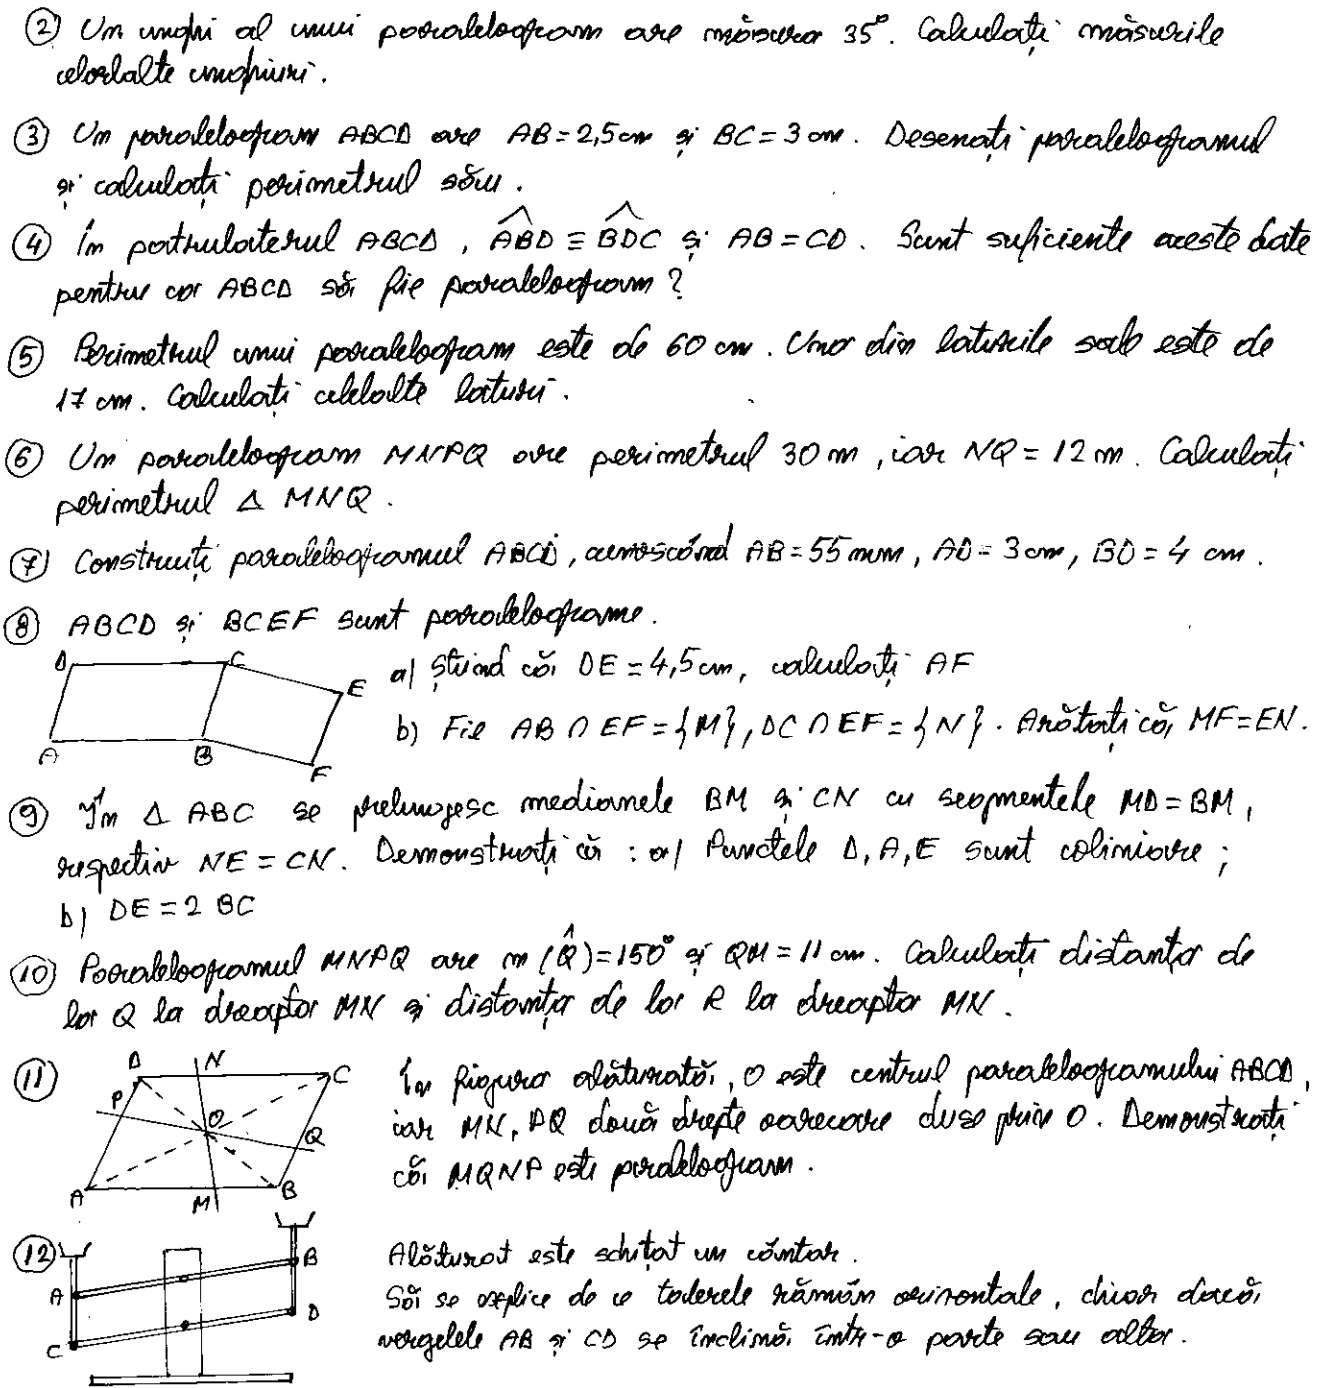 ② Un unghi al unui paralelogram are măsura 35°. Calculați măsurile
celorlalte unghiuri.
③ Un paralelogram ABCD are AB = 2,5 cm și BC = 3 cm. Desenați paralelogramul
și calculați perimetrul său.
④ În patrulaterul ABCD, ABD ≡ BDC și AB = CD. Sunt suficiente aceste date
pentru ca ABCD să fie paralelogram?
⑤ Perimetrul unui paralelogram este de 60 cm. Una din laturile sale este de
17 cm. Calculați celelalte laturi.
⑥ Un paralelogram MNPQ are perimetrul 30 m, iar NQ = 12 m. Calculați
perimetrul Δ MNQ.
⑦ Construiți paralelogramul ABCD, cunoscând AB = 55 mm, AD = 3 cm, BD = 4 cm.
⑧ ABCD și BCEF sunt paralelograme.
D C E A B F
a) Știind că DE = 4,5 cm, calculați AF
b) Fie AB ∩ EF = {M}, DC ∩ EF = {N}. Arătați că MF = EN.
⑨ În Δ ABC se prelungesc medianele BM și CN cu segmentele MD = BM,
respectiv NE = CN. Demonstrați că : a) Punctele D, A, E sunt coliniare ;
b) DE = 2 BC
⑩ Paralelogramul MNPQ are m(Q̂) = 150° și QM = 11 cm. Calculați distanța de
la Q la dreapta MN și distanța de la R la dreapta MN.
⑪ D N C P O Q A M B
În figura alăturată, O este centrul paralelogramului ABCD,
iar MN, PQ două drepte oarecare duse prin O. Demonstrați
că MQNP este paralelogram.
⑫ B A D C
Alăturat este schițat un cântar.
Să se explice de ce talerele rămân orizontale, chiar dacă
vergelele AB și CD se înclină într-o parte sau alta.